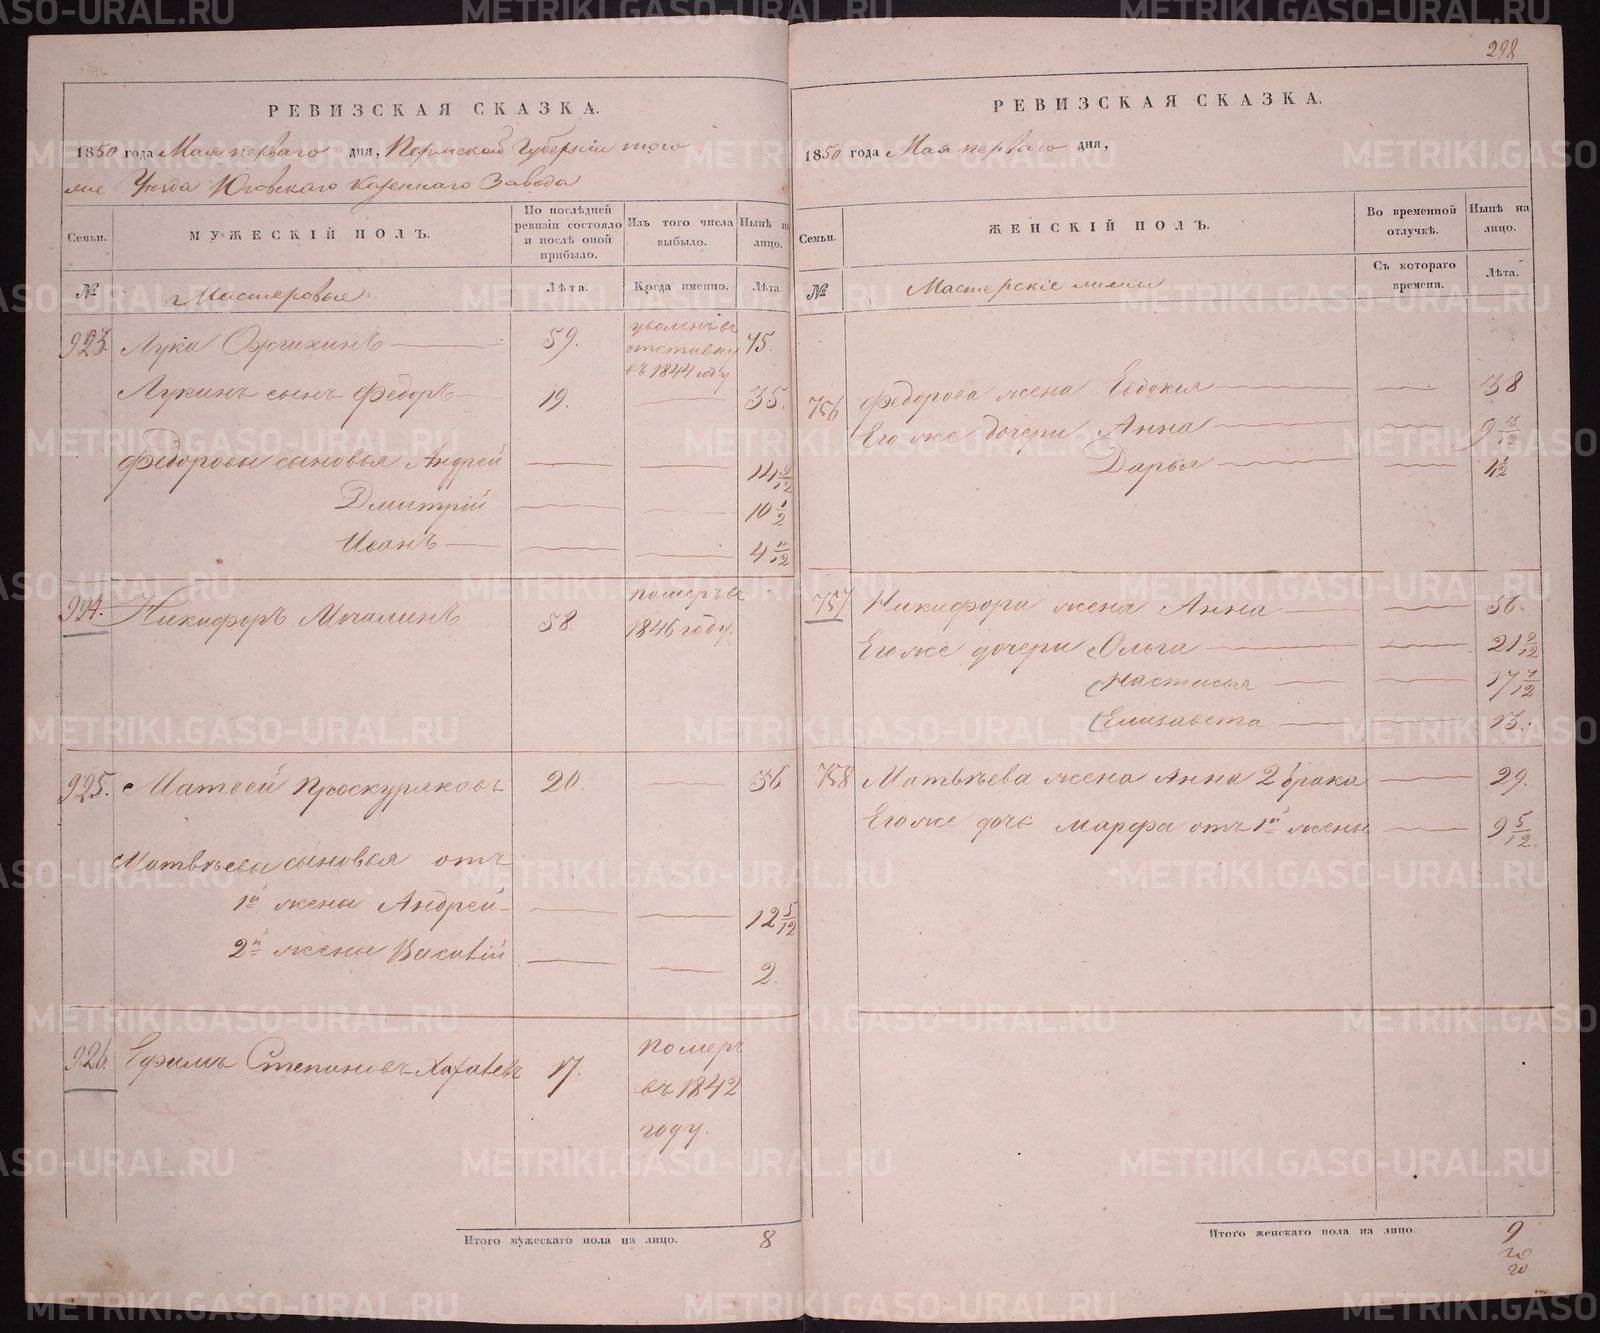 298
РЕВИЗСКАЯ СКАЗКА.
1850 года Мая перваго дня, Пермской Губерніи того
же Уѣзда Юговскаго Казеннаго Завода
Семьи.
МУЖЕСКІЙ ПОЛЪ.
По послѣдней ревизіи состояло и послѣ оной прибыло.
Изъ того числа выбыло.
Нынѣ на лицо.
№
Мастеровые
Лѣта.
Когда именно.
Лѣта.
923. Лука 59. уволенъ въ отставку въ 1844 году 75.
Лукинъ сынъ Федоръ 19. 35.
Федоровы сыновья Андрей 14 9/12
Дмитрій 10 1/2
Иванъ 4 11/12
924. Никифоръ Мочалинъ 58. померъ въ 1846 году.
925. Матвей Проскуряковъ 20. 36
Матвѣевы сыновья отъ
1й жены Андрей 12 5/12
2й жены Василій 2.
926. Ефимъ Степановъ 17. померъ въ 1842 году.
Итого мужескаго пола на лицо. 8
РЕВИЗСКАЯ СКАЗКА.
1850 года Мая перваго дня,
Семьи.
ЖЕНСКІЙ ПОЛЪ.
Во временной отлучкѣ.
Нынѣ на лицо.
№
Мастерскіе
Съ котораго времени.
Лѣта.
756 Федорова жена Евдокія 38
Его же дочери Анна 9 3/12
Дарья 1/12
757 Никифора жена Анна 56.
Его же дочери Ольга 21 9/12
Настасья 17 7/12
Елизавета 13.
758 Матвѣева жена Анна 2 брака 29.
Его же дочь Марфа отъ 1й жены 9 5/12.
Итого женскаго пола на лицо. 9
20
20
METRIKI.GASO-URAL.RU